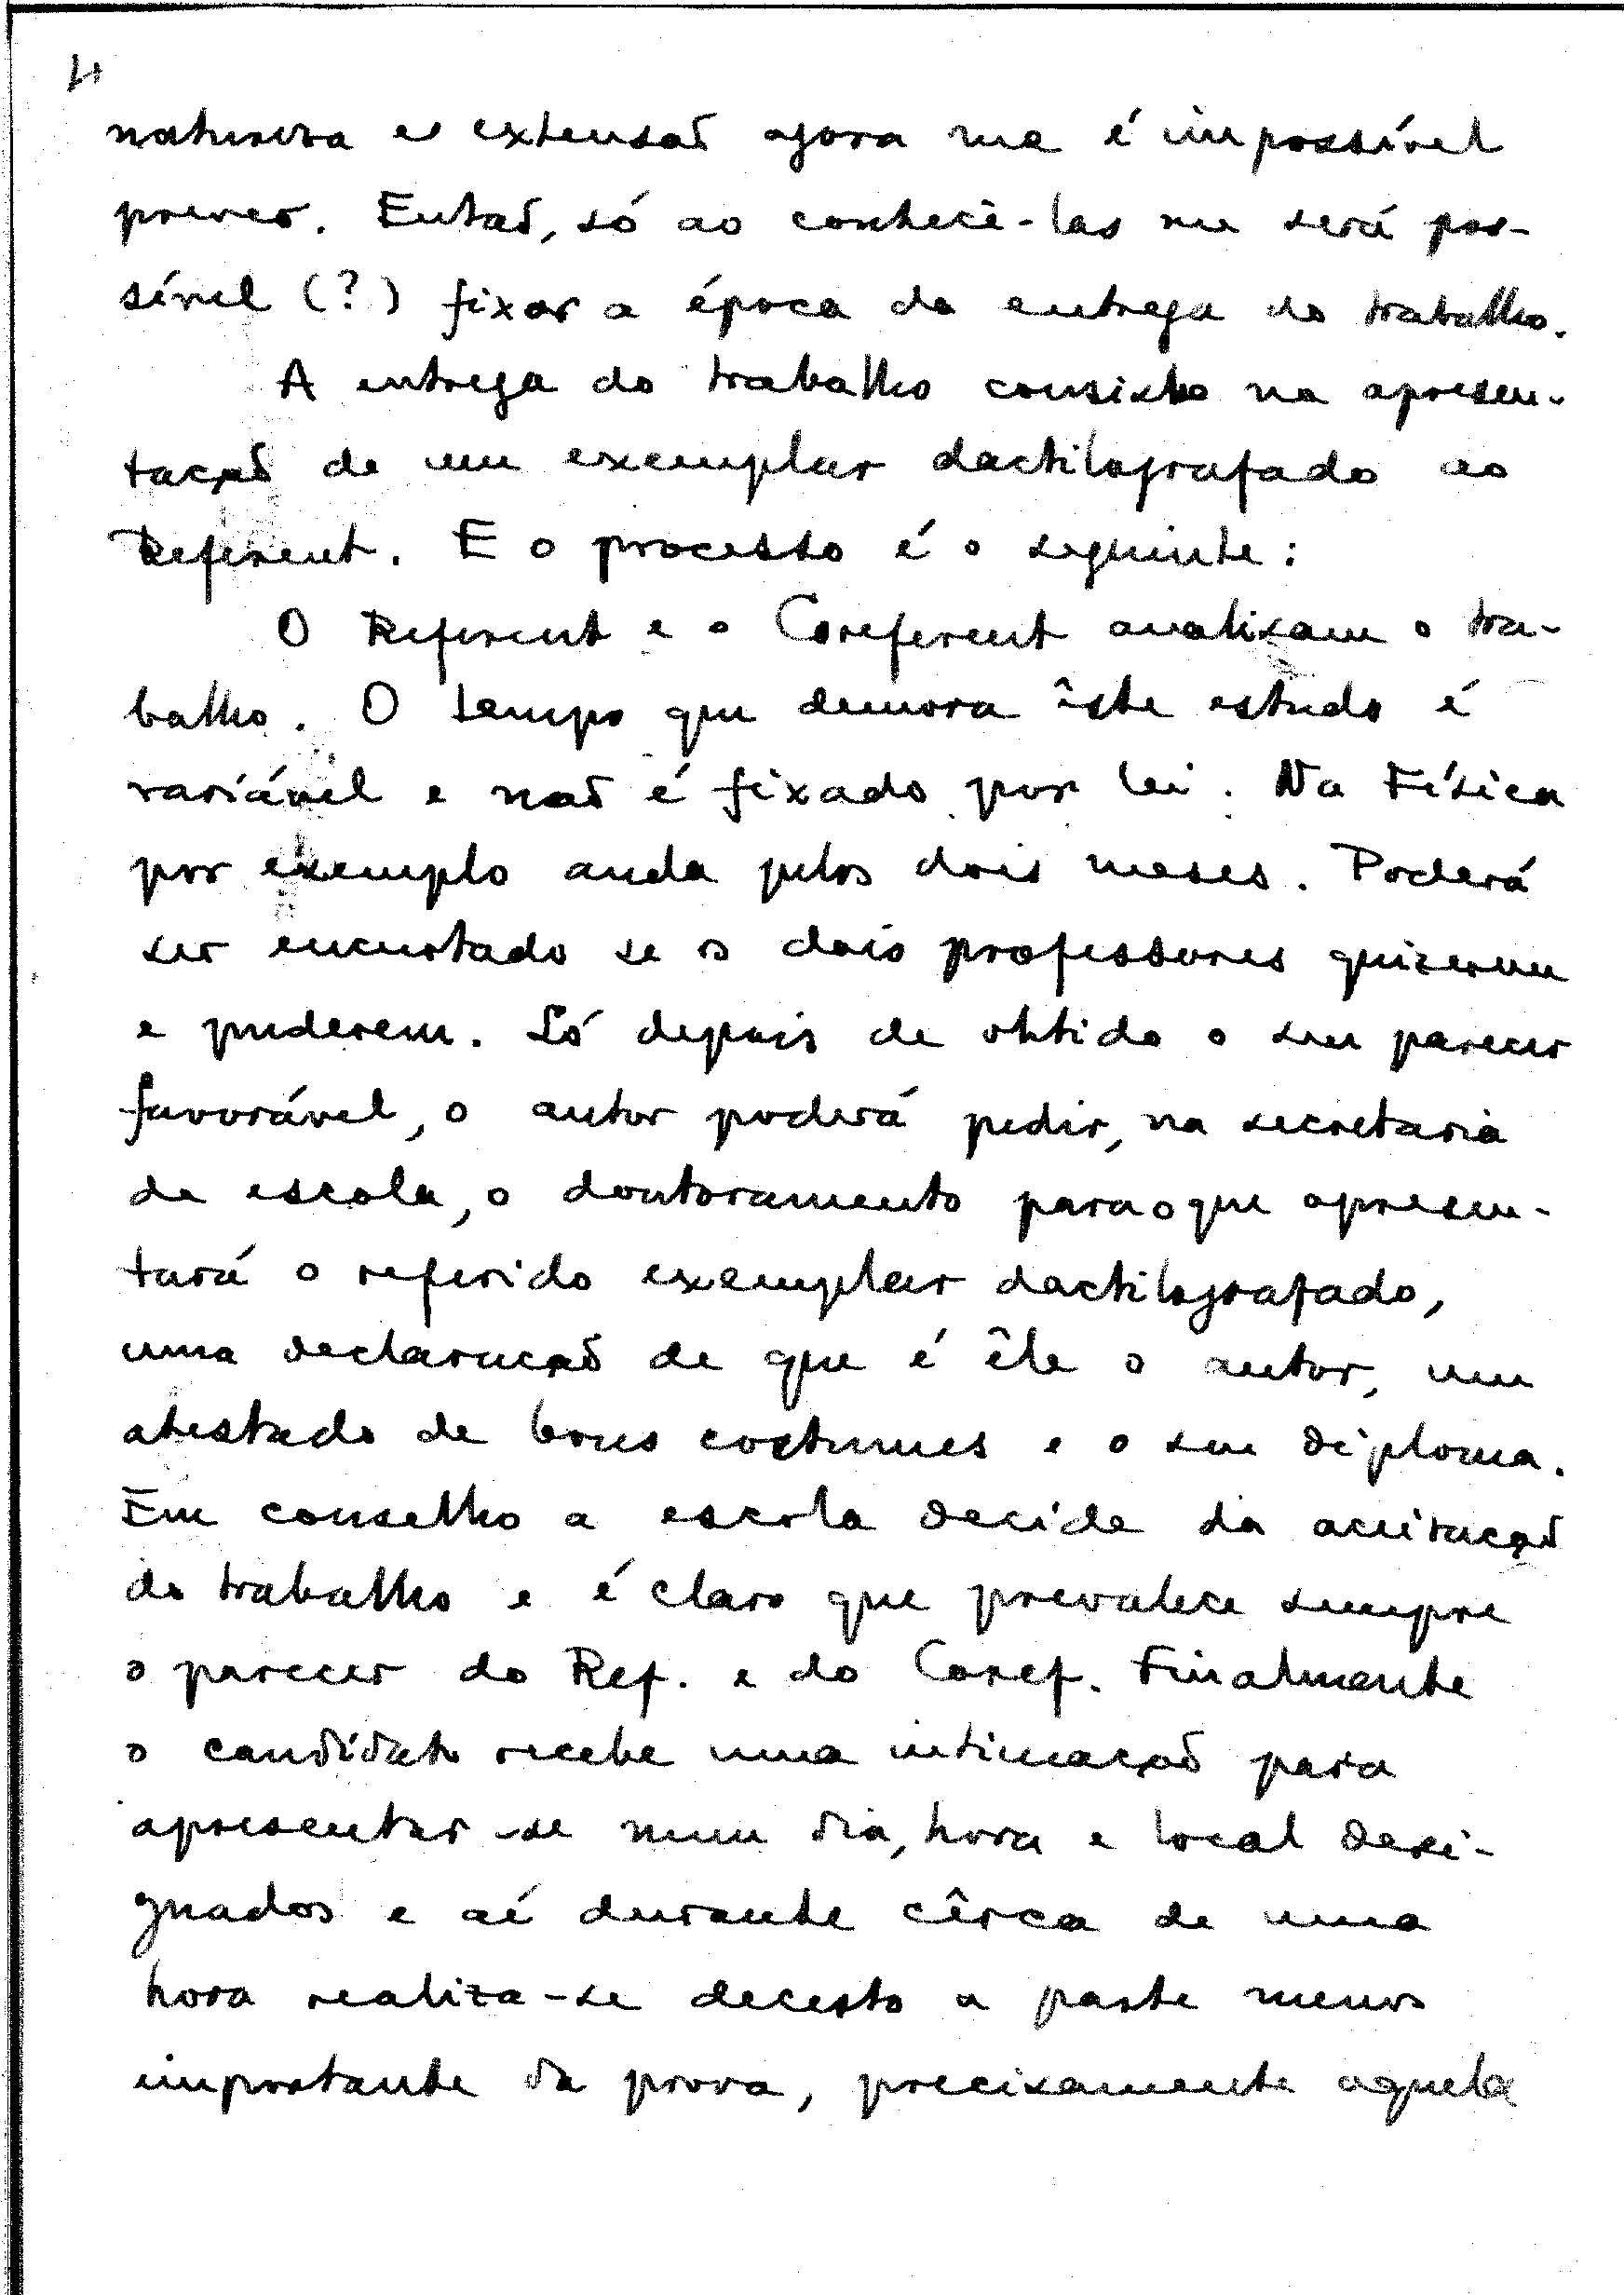 4
natureza e extensão agora me é impossível
prever. Então, só ao conhecê-las me será pos-
sível (?) fixar a época da entrega do trabalho.
A entrega do trabalho consiste na apresen-
tação de um exemplar dactilografado ao
Referent. E o processo é o seguinte:
O Referent e o Coreferent analisam o tra-
balho. O tempo que demora êste estudo é
variável e não é fixado por lei. Na Física
por exemplo anda pelos dois meses. Poderá
ser encurtado se os dois professores quizerem
e puderem. Só depois de obtido o seu parecer
favorável, o autor poderá pedir, na secretaria
da escola, o doutoramento para o que apresen-
tará o referido exemplar dactilografado,
uma declaração de que é êle o autor, um
atestado de bons costumes e o seu diploma.
Em conselho a escola decide da aceitação
do trabalho e é claro que prevalece sempre
o parecer do Ref. e do Coref. Finalmente
o candidato recebe uma intimação para
apresentar-se num dia, hora e local desi-
gnados e aí durante cêrca de uma
hora realiza-se decerto a parte menos
importante da prova, precisamente aquela